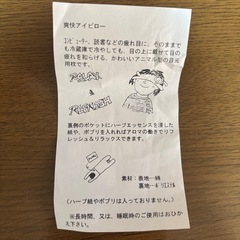 爽快アイピロー
コンピューター、読書などの疲れ目に、そのままで
も冷蔵庫で冷やしても、目の上に載せて目の
疲れを和らげる、かわいいアニマル型の目元
用枕です。
RELAX
&
REFRESH
裏側のポケットにハーブエッセンスを浸した
紙や、ポプリを入れればアロマの働きでリフ
レッシュ＆リラックスできます。
素材：表地--綿
裏地--ポリエステル
(ハーブ紙やポプリは入っておりません。)
※長時間、又は、睡眠時のご使用はおひか
え下さい。